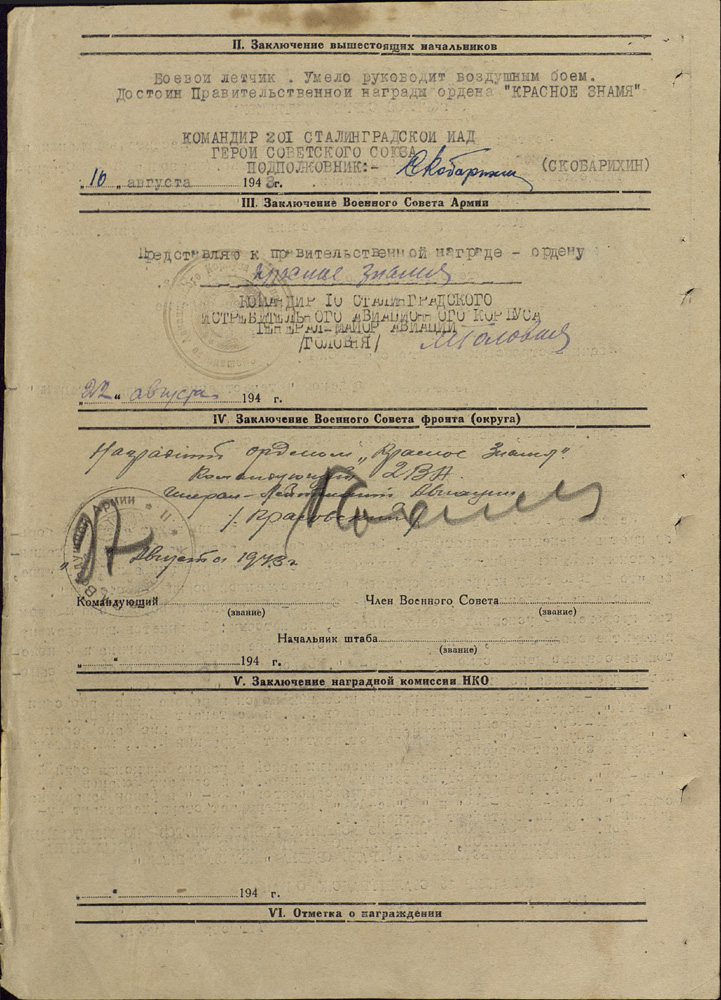 II. Заключение вышестоящих начальников
Боевой летчик . Умело руководит воздушным боем.
Достоин Правительственной награды ордена "КРАСНОЕ ЗНАМЯ"
КОМАНДИР 201 СТАЛИНГРАДСКОЙ ИАД
ГЕРОЙ СОВЕТСКОГО СОЮЗА
ПОДПОЛКОВНИК:- Скобарихин (СКОБАРИХИН)
„16„ августа 1943г.
III. Заключение Военного Совета Армии
Представляю к правительственной награде - ордену
Красное Знамя
КОМАНДИР 1О СТАЛИНГРАДСКОГО
ИСТРЕБИТЕЛЬНОГО АВИАЦИОННОГО КОРПУСА
ГЕНЕРАЛ-МАЙОР АВИАЦИИ
/ГОЛОВНЯ/ Головня
„22“ августа 194 г.
IV. Заключение Военного Совета фронта (округа)
Наградить орденом „Красное Знамя“.
Командующий 2ВА
Генерал-Лейтенант Авиации
/. Красовский/
„27 Августа 1943 г
Командующий Член Военного Совета
(звание) (звание)
Начальник штаба
(звание)
„ “ 194 г.
V. Заключение наградной комиссии НКО
„ “ 194 г.
VI. Отметка о награждении